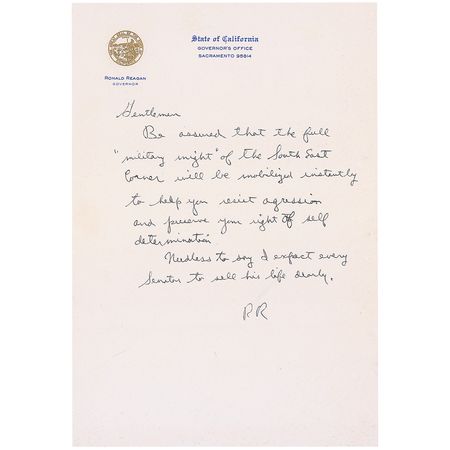 State of California
GOVERNOR'S OFFICE
SACRAMENTO 95814
RONALD REAGAN
GOVERNOR
Gentlemen
Be assured that the full
"military might" of the South East
Corner will be mobilized instantly
to help you resist agression
and preserve your right of self
determination
Needless to say I expect every
Senator to sell his life dearly.
RR